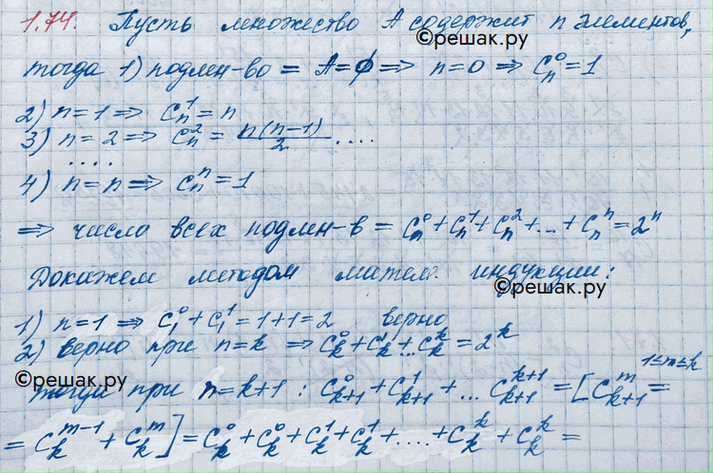 1.74. Пусть множество A содержит n элементов,
©решак.ру
тогда 1) подмн-во = A=∅ ⇒ n=0 ⇒ C_n^0=1
2) n=1 ⇒ C_n^1=n
3) n=2 ⇒ C_n^2= n(n-1)/2 ....
....
4) n=n ⇒ C_n^n=1
⇒ числа всех подмн-в = C_n^0+C_n^1+C_n^2+...+C_n^n=2^n
Докажем методом матем. индукции:
©решак.ру
1) n=1 ⇒ C_1^0+C_1^1=1+1=2 верно
2) верно при n=k ⇒ C_k^0+C_k^1+...C_k^k=2^k
©решак.ру
тогда при n=k+1: C_{k+1}^0+C_{k+1}^1+...C_{k+1}^{k+1}=[C_{k+1}^m 1≤m≤k =
=C_k^{m-1}+C_k^m]=C_k^0+C_k^0+C_k^1+C_k^1+....+C_k^k+C_k^k=